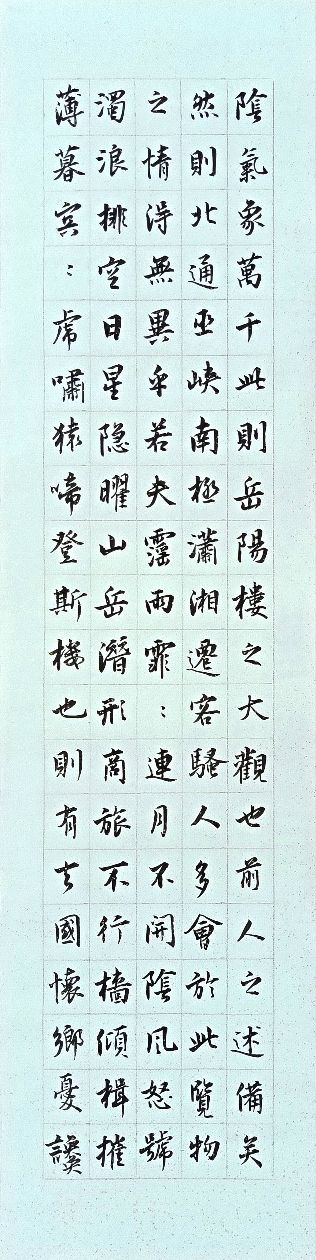 陰氣象萬千此則岳陽樓之大觀也前人之述備矣
然則北通巫峽南極瀟湘遷客騷人多會於此覽物
之情得無異乎若夫霪雨霏：連月不開陰風怒號
濁浪排空日星隐曜山岳潛形商旅不行檣傾楫摧
薄暮冥：虎嘯猿啼登斯樓也則有去國懷鄉憂讒